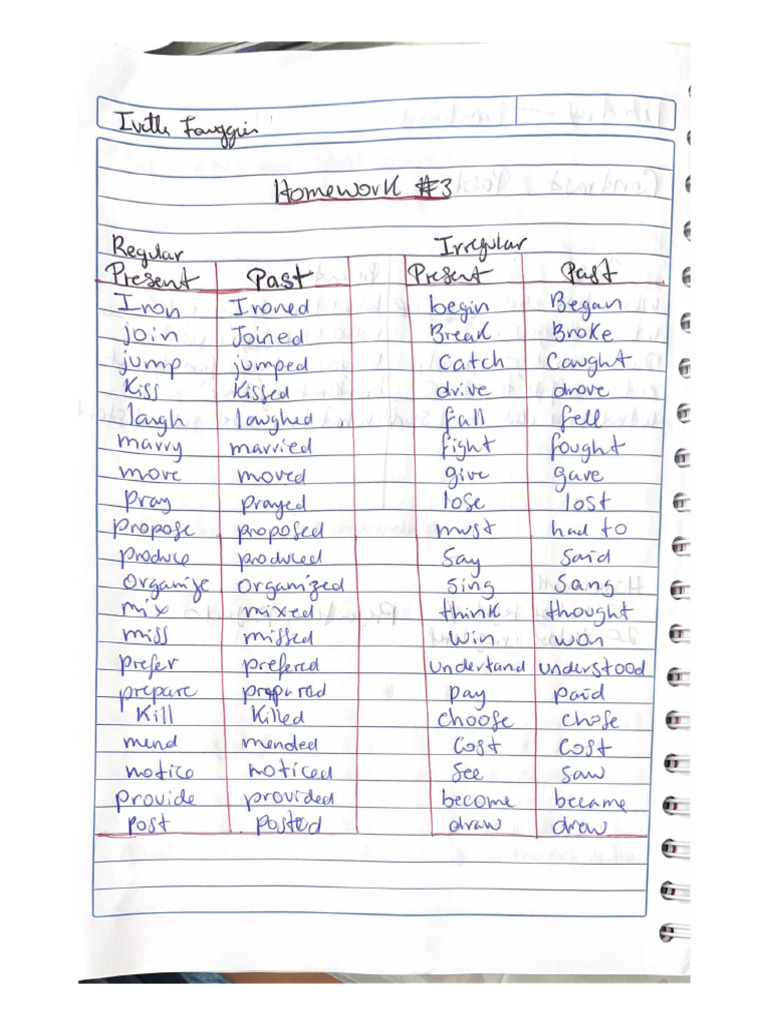 Homework #3
Regular Irregular
Present Past Present Past
Iron Ironed begin Began
join Joined Break Broke
jump jumped Catch Caught
Kiss Kissed drive drove
laugh laughed fall fell
marry married fight fought
move moved give gave
pray prayed lose lost
propose proposed must had to
produce produced Say Said
Organize Organized Sing Sang
mix mixed think thought
miss missed win won
prefer prefered undertand understood
prepare prepared pay paid
Kill Killed choose chose
mend mended Cost Cost
notice noticed See saw
provide provided become became
post posted draw drew